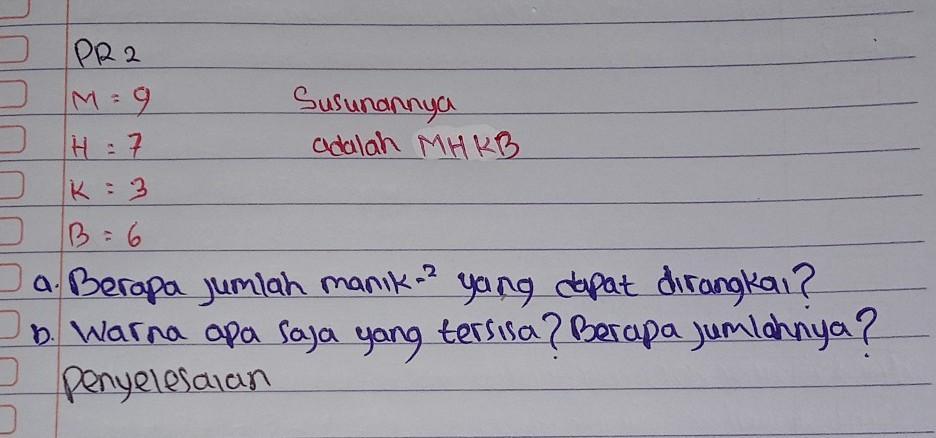 PR 2
M = 9 Susunannya
H = 7 adalah MHKB
K = 3
B = 6
a. Berapa jumlah manik-² yang dapat dirangkai?
b. Warna apa saja yang tersisa? Berapa jumlahnya?
Penyelesaian